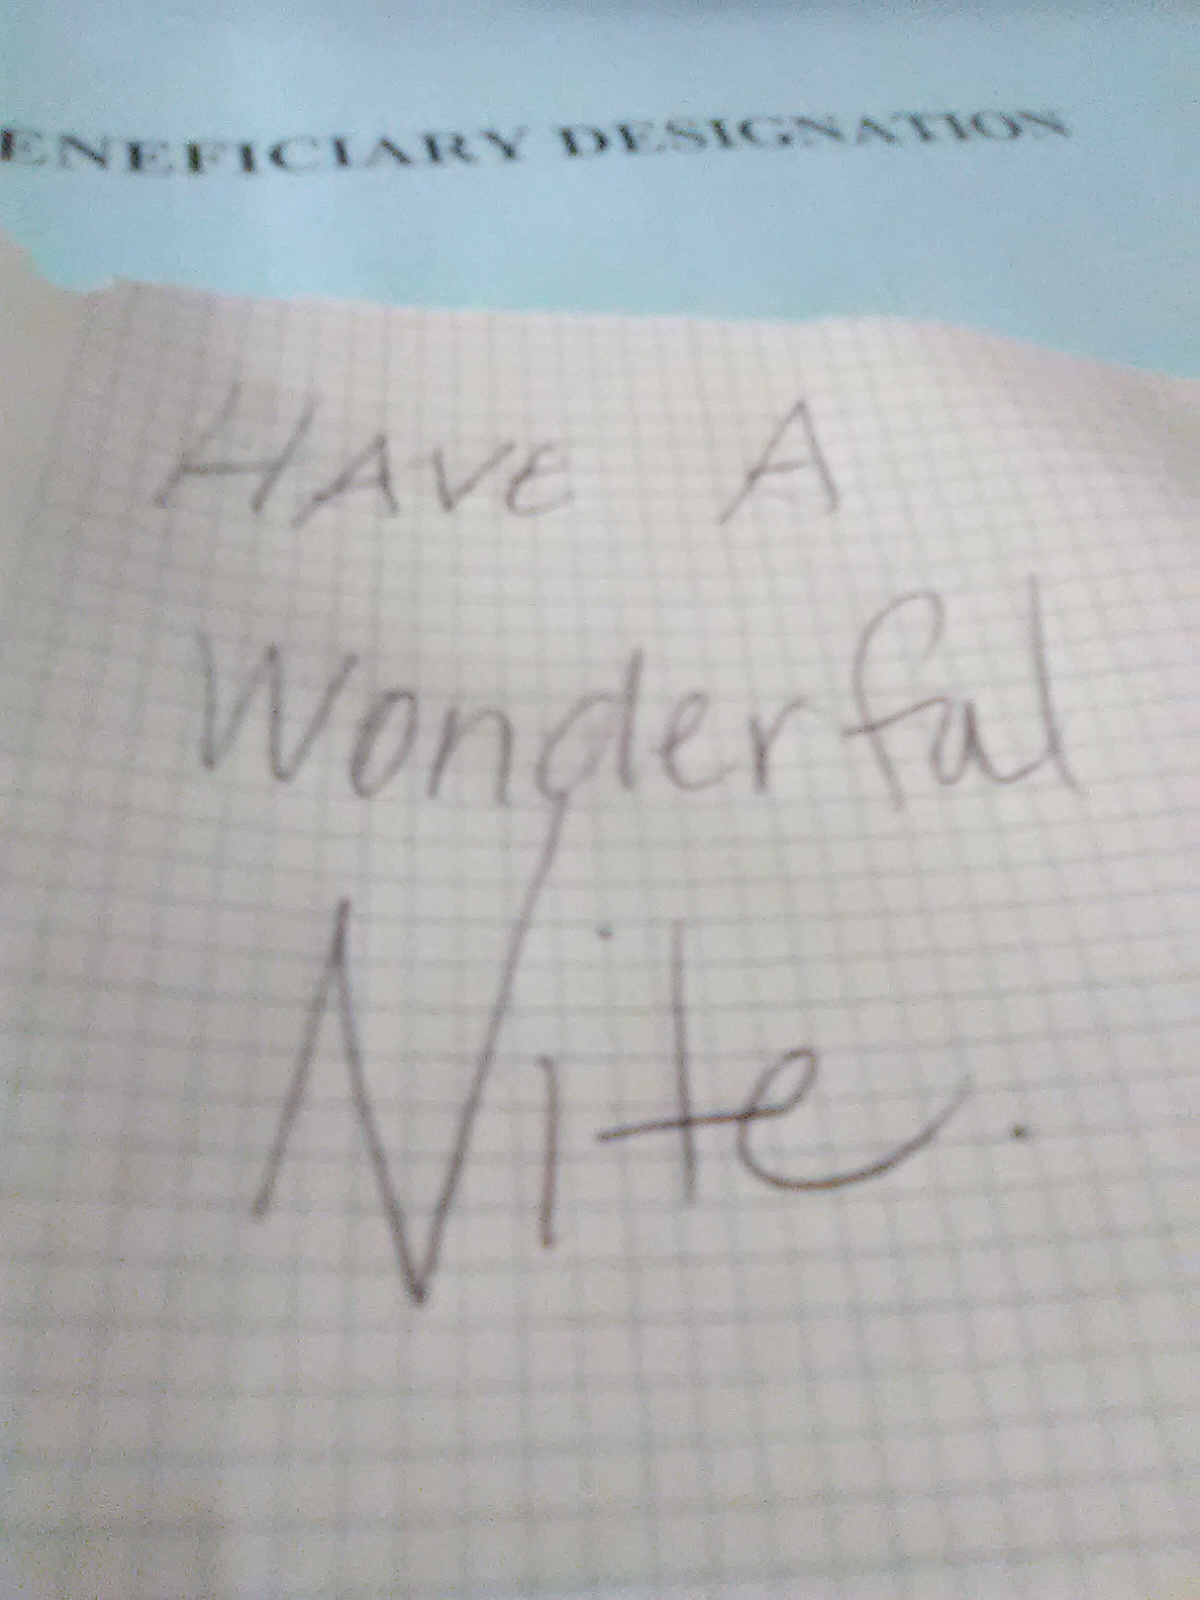 ENEFICIARY DESIGNATION
HAVE A
Wonderful
Nite.